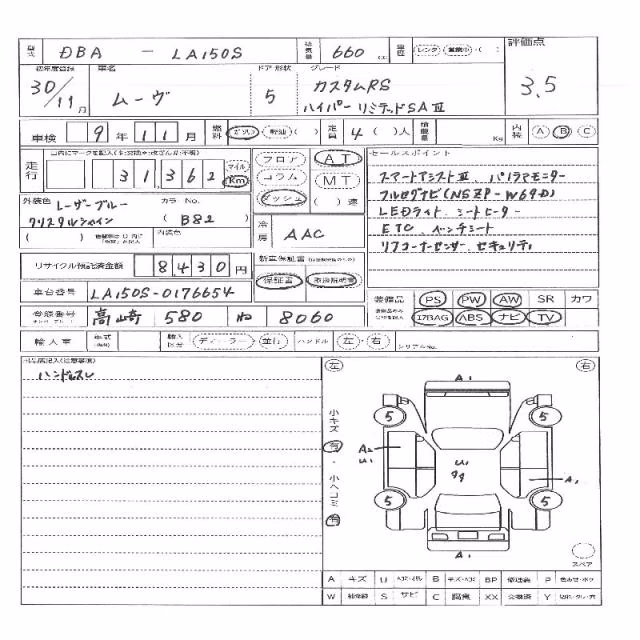 型式 DBA - LA150S 排気量 660 cc 車歴 レンタ 営業中 ( ) 評価点
3.5
初年度登録 30/11月 車名 ムーヴ ドア形状 5 グレード カスタムRS
ハイパーリミテッドSAⅢ
車検 9年11月 燃料 ガソリン 軽油 ( ) 定員 4 ( )人 積載量 Kg 内装 A B C
走行 31,362 マイル Km
フロア コラム ダッシュ AT MT ( )速
セールスポイント
スマートアシストⅢ、パノラマモニター
フルセグナビ(NSZP-W69D)
LEDライト、シートヒーター
ETC、ベンチシート
リヤコーナーセンサー、セキュリティ
外装色 レーザーブルー
クリスタルシャイン
カラーNo. (B82)
( ) 内装色
冷房 AAC
リサイクル預託済金額 8430円
新車保証書
保証書 取扱説明書
車台番号 LA150S-0176654
装備品 PS PW AW SR カワ
登録番号 高崎 580 ぬ 8060
エアBAG ABS ナビ TV
輸入車 年式 輸入区分 ディーラー・並行 ハンドル 左・右 シリアルNo.
ハンドルスレ
左 右
A1
5 5
小キズ 有・小ヘコミ 有
A2
U1
U1
A1
5 5
A1
スペア
A キズ U B BP 修理跡 P 色あせ・ボケ
W S サビ C 腐食 XX 交換済 Y